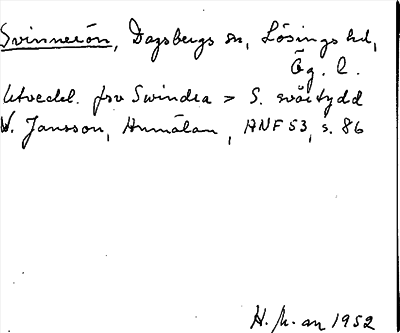 Svinnerön, Dagsbergs sn, Lösings hd,
Ög. l.
Utveckl. frv Swindra > S. svårtydd
V. Jansson, Anmälan, ANF 53, s. 86
H. h. an 1952